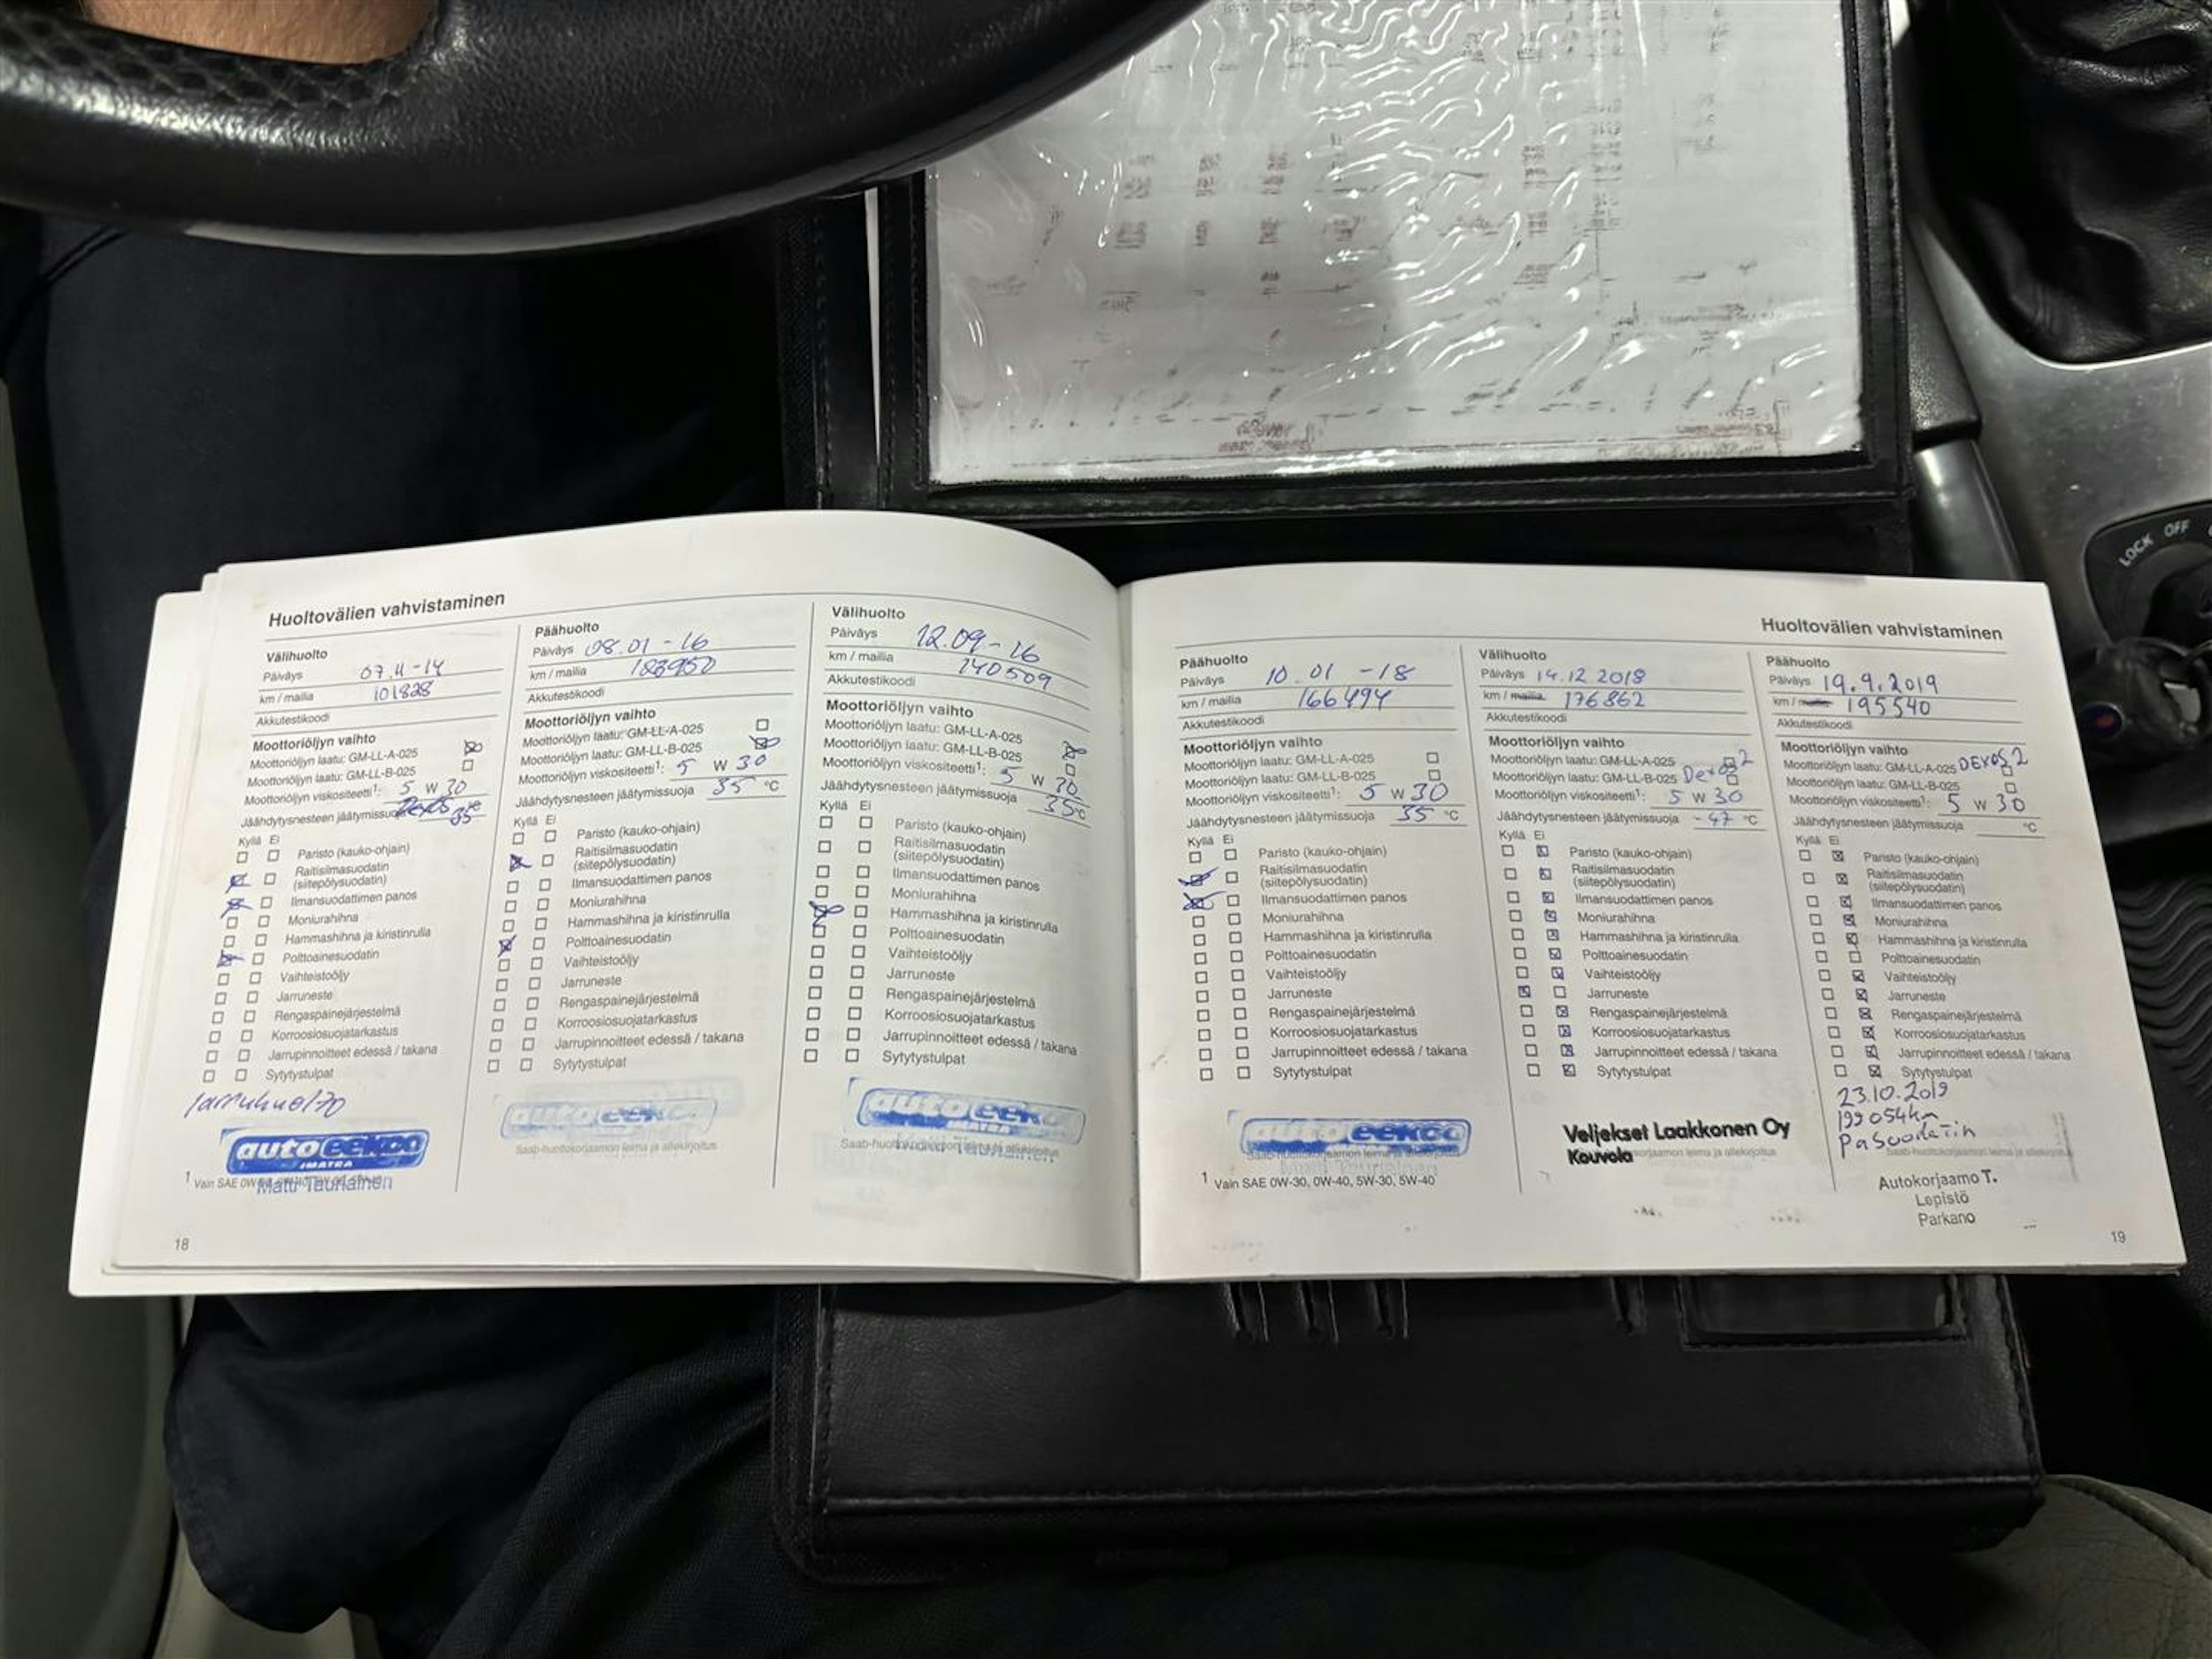 LOCK OFF
Huoltovälien vahvistaminen
Välihuolto
Päiväys 07.11-14
km / mailia 101828
Akkutestikoodi
Moottoriöljyn vaihto
Moottoriöljyn laatu: GM-LL-A-025
Moottoriöljyn laatu: GM-LL-B-025
Moottoriöljyn viskositeetti1: 5 W 30
Jäähdytysnesteen jäätymissuoja 35
Kyllä Ei
Paristo (kauko-ohjain)
Raitisilmasuodatin
(siitepölysuodatin)
Ilmansuodattimen panos
Moniurahihna
Hammashihna ja kiristinrulla
Polttoainesuodatin
Vaihteistoöljy
Jarruneste
Rengaspainejärjestelmä
Korroosiosuojatarkastus
Jarrupinnoitteet edessä / takana
Sytytystulpat
Jarruhuolto
autoeekoo
IMATRA
Matti Tauriainen
1 Vain SAE
18
Päähuolto
Päiväys 08.01-16
km / mailia
Akkutestikoodi
Moottoriöljyn vaihto
Moottoriöljyn laatu: GM-LL-A-025
Moottoriöljyn laatu: GM-LL-B-025
Moottoriöljyn viskositeetti1: 5 W 30
Jäähdytysnesteen jäätymissuoja 35 °C
Kyllä Ei
Paristo (kauko-ohjain)
Raitisilmasuodatin
(siitepölysuodatin)
Ilmansuodattimen panos
Moniurahihna
Hammashihna ja kiristinrulla
Polttoainesuodatin
Vaihteistoöljy
Jarruneste
Rengaspainejärjestelmä
Korroosiosuojatarkastus
Jarrupinnoitteet edessä / takana
Sytytystulpat
autoeekoo
Saab-huoltokorjaamon leima ja allekirjoitus
Välihuolto
Päiväys 12.09-16
km / mailia 140509
Akkutestikoodi
Moottoriöljyn vaihto
Moottoriöljyn laatu: GM-LL-A-025
Moottoriöljyn laatu: GM-LL-B-025
Moottoriöljyn viskositeetti1: 5 W 30
Jäähdytysnesteen jäätymissuoja 35°C
Kyllä Ei
Paristo (kauko-ohjain)
Raitisilmasuodatin
(siitepölysuodatin)
Ilmansuodattimen panos
Moniurahihna
Hammashihna ja kiristinrulla
Polttoainesuodatin
Vaihteistoöljy
Jarruneste
Rengaspainejärjestelmä
Korroosiosuojatarkastus
Jarrupinnoitteet edessä / takana
Sytytystulpat
autoeekoo
IMATRA
Huoltovälien vahvistaminen
Päähuolto
Päiväys 10.01-18
km / mailia 166494
Akkutestikoodi
Moottoriöljyn vaihto
Moottoriöljyn laatu: GM-LL-A-025
Moottoriöljyn laatu: GM-LL-B-025
Moottoriöljyn viskositeetti1: 5 W 30
Jäähdytysnesteen jäätymissuoja 35 °C
Kyllä Ei
Paristo (kauko-ohjain)
Raitisilmasuodatin
(siitepölysuodatin)
Ilmansuodattimen panos
Moniurahihna
Hammashihna ja kiristinrulla
Polttoainesuodatin
Vaihteistoöljy
Jarruneste
Rengaspainejärjestelmä
Korroosiosuojatarkastus
Jarrupinnoitteet edessä / takana
Sytytystulpat
autoeekoo
1 Vain SAE 0W-30, 0W-40, 5W-30, 5W-40
Välihuolto
Päiväys 14.12 2018
km / mailia 176862
Akkutestikoodi
Moottoriöljyn vaihto
Moottoriöljyn laatu: GM-LL-A-025
Moottoriöljyn laatu: GM-LL-B-025 Dexos 2
Moottoriöljyn viskositeetti1: 5 W 30
Jäähdytysnesteen jäätymissuoja -47 °C
Kyllä Ei
Paristo (kauko-ohjain)
Raitisilmasuodatin
(siitepölysuodatin)
Ilmansuodattimen panos
Moniurahihna
Hammashihna ja kiristinrulla
Polttoainesuodatin
Vaihteistoöljy
Jarruneste
Rengaspainejärjestelmä
Korroosiosuojatarkastus
Jarrupinnoitteet edessä / takana
Sytytystulpat
Veljekset Laakkonen Oy
Kouvola
Päähuolto
Päiväys 19.9.2019
km / mailia 195540
Akkutestikoodi
Moottoriöljyn vaihto
Moottoriöljyn laatu: GM-LL-A-025 DEXOS 2
Moottoriöljyn laatu: GM-LL-B-025
Moottoriöljyn viskositeetti1: 5 W 30
Jäähdytysnesteen jäätymissuoja °C
Kyllä Ei
Paristo (kauko-ohjain)
Raitisilmasuodatin
(siitepölysuodatin)
Ilmansuodattimen panos
Moniurahihna
Hammashihna ja kiristinrulla
Polttoainesuodatin
Vaihteistoöljy
Jarruneste
Rengaspainejärjestelmä
Korroosiosuojatarkastus
Jarrupinnoitteet edessä / takana
Sytytystulpat
23.10.2019
199054km
Pasuodatin
Saab-huoltokorjaamon leima ja allekirjoitus
Autokorjaamo T.
Lepistö
Parkano
19